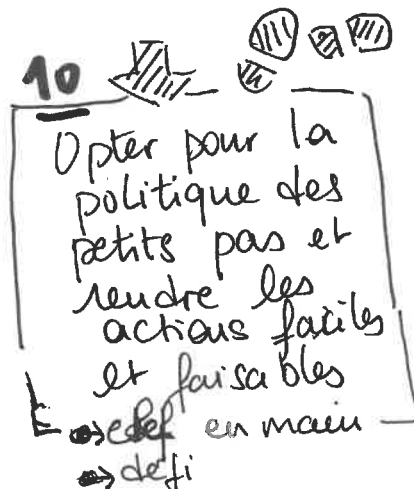 10
Opter pour la
politique des
petits pas et
rendre les
actions faciles
et faisables
→ clef en main
→ défi